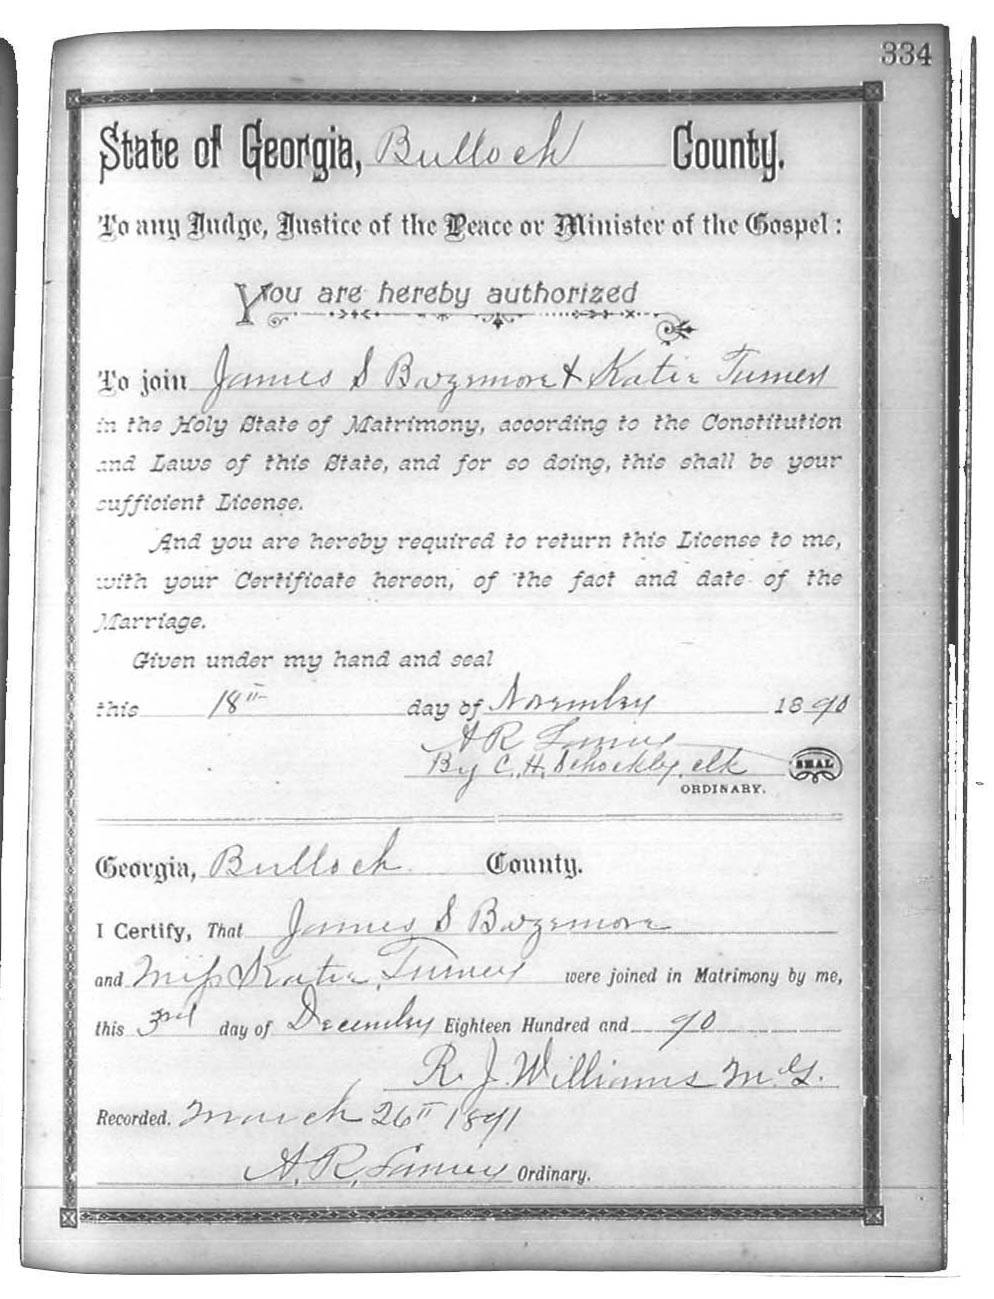 334
State of Georgia, Bulloch County.
To any Judge, Justice of the Peace or Minister of the Gospel:
You are hereby authorized
To join James S Bazemore & Katie Turner
in the Holy State of Matrimony, according to the Constitution
and Laws of this State, and for so doing, this shall be your
sufficient License.
And you are hereby required to return this License to me,
with your Certificate hereon, of the fact and date of the
Marriage.
Given under my hand and seal
this 18th day of November 1890
A R Lanier
By C. H. Shockley, clk SEAL
ORDINARY.
Georgia, Bulloch County.
I Certify, That James S Bazemore
and Miss Katie Turner were joined in Matrimony by me,
this 3rd day of December Eighteen Hundred and 90
R. J. Williams M.G.
Recorded. March 26th 1891
A. R. Lanier Ordinary.